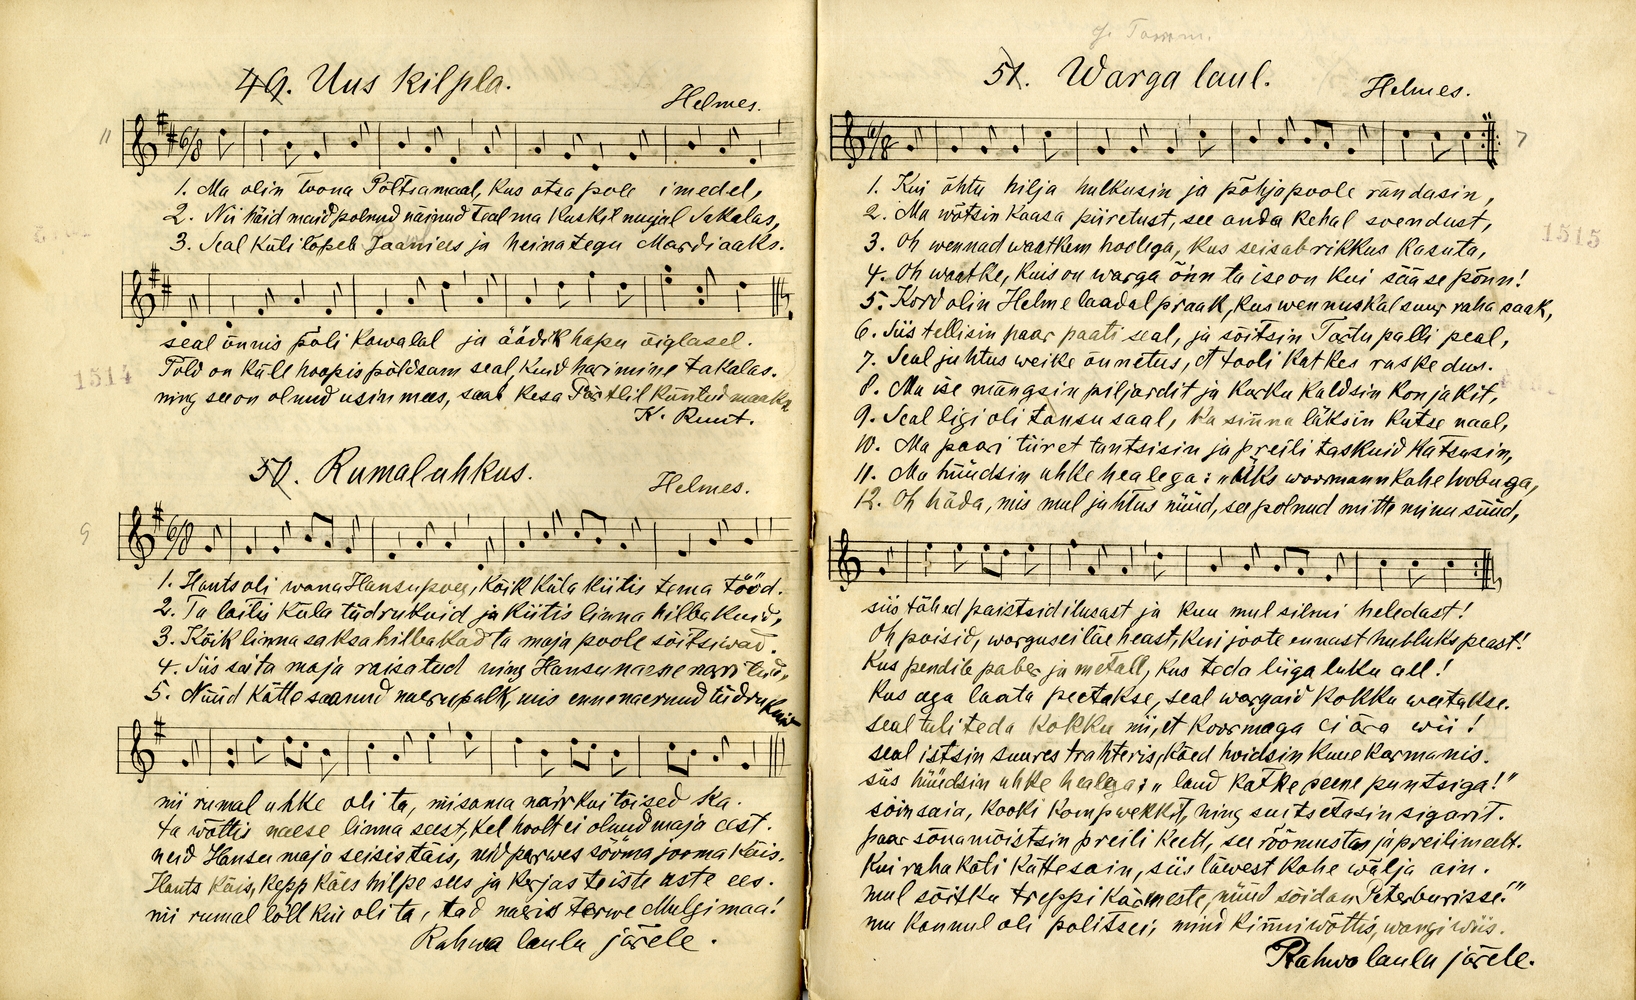 49. Uus kilpla.
Helmes.
11
1. Ma olin toona Põltsamaal, kus otsa pole imedel,
2. Nii häid maid polnud näinud teal ma kuskil mujal Sakalas,
3. Seal küli lõpeb Jaanieis ja heinategu Mardiaaks.
seal õnnis põli kawalal ja äädikhapu õiglasel.
Põld on küll hoopis põldsam seal, kuid harimine takalas.
1514
ning see on olnud usin mees, saab kesa Pärtlil küntud maaks
K. Ruut.
50. Rumal uhkus.
Helmes.
9
1. Hants oli wana Hansu poeg, kõik küla kiitis tema tööd.
2. Ta laitis küla tüdrukuid ja kiitis linna hilbakuid,
3. Kõik linna saksa hilbakad ta maja poole sõitsiwad.
4. Siis sai ta maja raisatud ning Hansu naene narritud,
5. Nüüd kätte saanud naerupalk, mis enne naernud tüdrukuid
nii rumal uhke oli ta, niisama narr kui tõised ka.
ta wõttis naese linna seest, kel hoolt ei olnud maja eest.
neid Hansu maja seisis täis, neid parwes sööma jooma käis.
Hants käis, kepp käes hilpe sees ja kerjas teiste uste ees.
nii rumal loll kui oli ta, tad naeris terwe Mulgimaa!
Rahwa laulu järele.
J. Tamm.
51. Warga laul.
Helmes.
7
1. Kui õhtu hilja hulkusin ja põhjapoole rändasin,
2. Ma wõtsin kaasa piiretust, see anda kehal soendust,
3. Oh wennad waatkem hoolega, kus seisab rikkus kasuta,
1515
4. Oh waatke, kuis on warga õnn ta ise on kui sääse põnn!
5. Kord olin Helme laadal praak, kus wennuskal suur raha saak,
6. Siis tellisin paar paati seal, ja sõitsin Tartu palli peal,
7. Seal juhtus weike õnnetus, et tooli katkes raskedus.
8. Ma ise mängsin piljardit ja kurku kaldsin konjakit,
9. Seal ligi oli tansu saal, ka sinna läksin kutse naal,
10. Ma paari tiiret tantsisin ja preili taskuid katsusin,
11. Ma hüüdsin uhke healega: „Üks woormann kahe hobuga,
12. Oh häda, mis mul juhtus nüüd, see polnud mitte minu süüd,
siis tähed paistsid ilusast ja kuu mul silmi heledast!
Oh poisid, wargus ei läe heast, kui joote ennast hulluks peast!
Kus pendib paber ja metall, kus teda liiga luku all!
kus aga laata peetakse, seal wargaid kokku weetakse.
seal tuli teda kokku nii, et koormaga ei ära wii!
seal istsin suures trahteris, käed hoidsin kuue karmanis.
siis hüüdsin uhke healega: „laud katke peene puntsiga!"
sõin saia, kooki kompwekkit, ning suitsetasin sigarit.
paar sõna mõistsin preili keelt, see rõõmustas ja preili meelt.
kui raha koti kätte sain, siis läwest kohe wälja ain.
mul sõitku treppi kärmeste, nüüd sõidan Peterburisse!"
mu kannul oli politsei, mind kinni wõttis, wangi wiis.
Rahwa laulu järele.